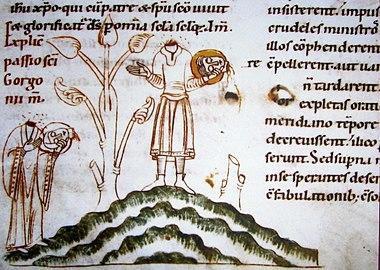 ihu xp̄o · qui cū patre & spū sc̄o uiuit
& glorificat᷑ d̄s p̄ om̄ia sc̄la sc̄loꝝ. Am̄.
Explic̄
passio sc̄i
Gorgo
nii m̄.
insisterent. impu
crudeles ministro
illos cōp̄henderent
re
pellerent. aut ua
n̄ tardarent.
expletis orati
meridiano tēpore
decreuissent. ilico
serunt. Sed supna n
inse sperantes deser
cōfabulationib;